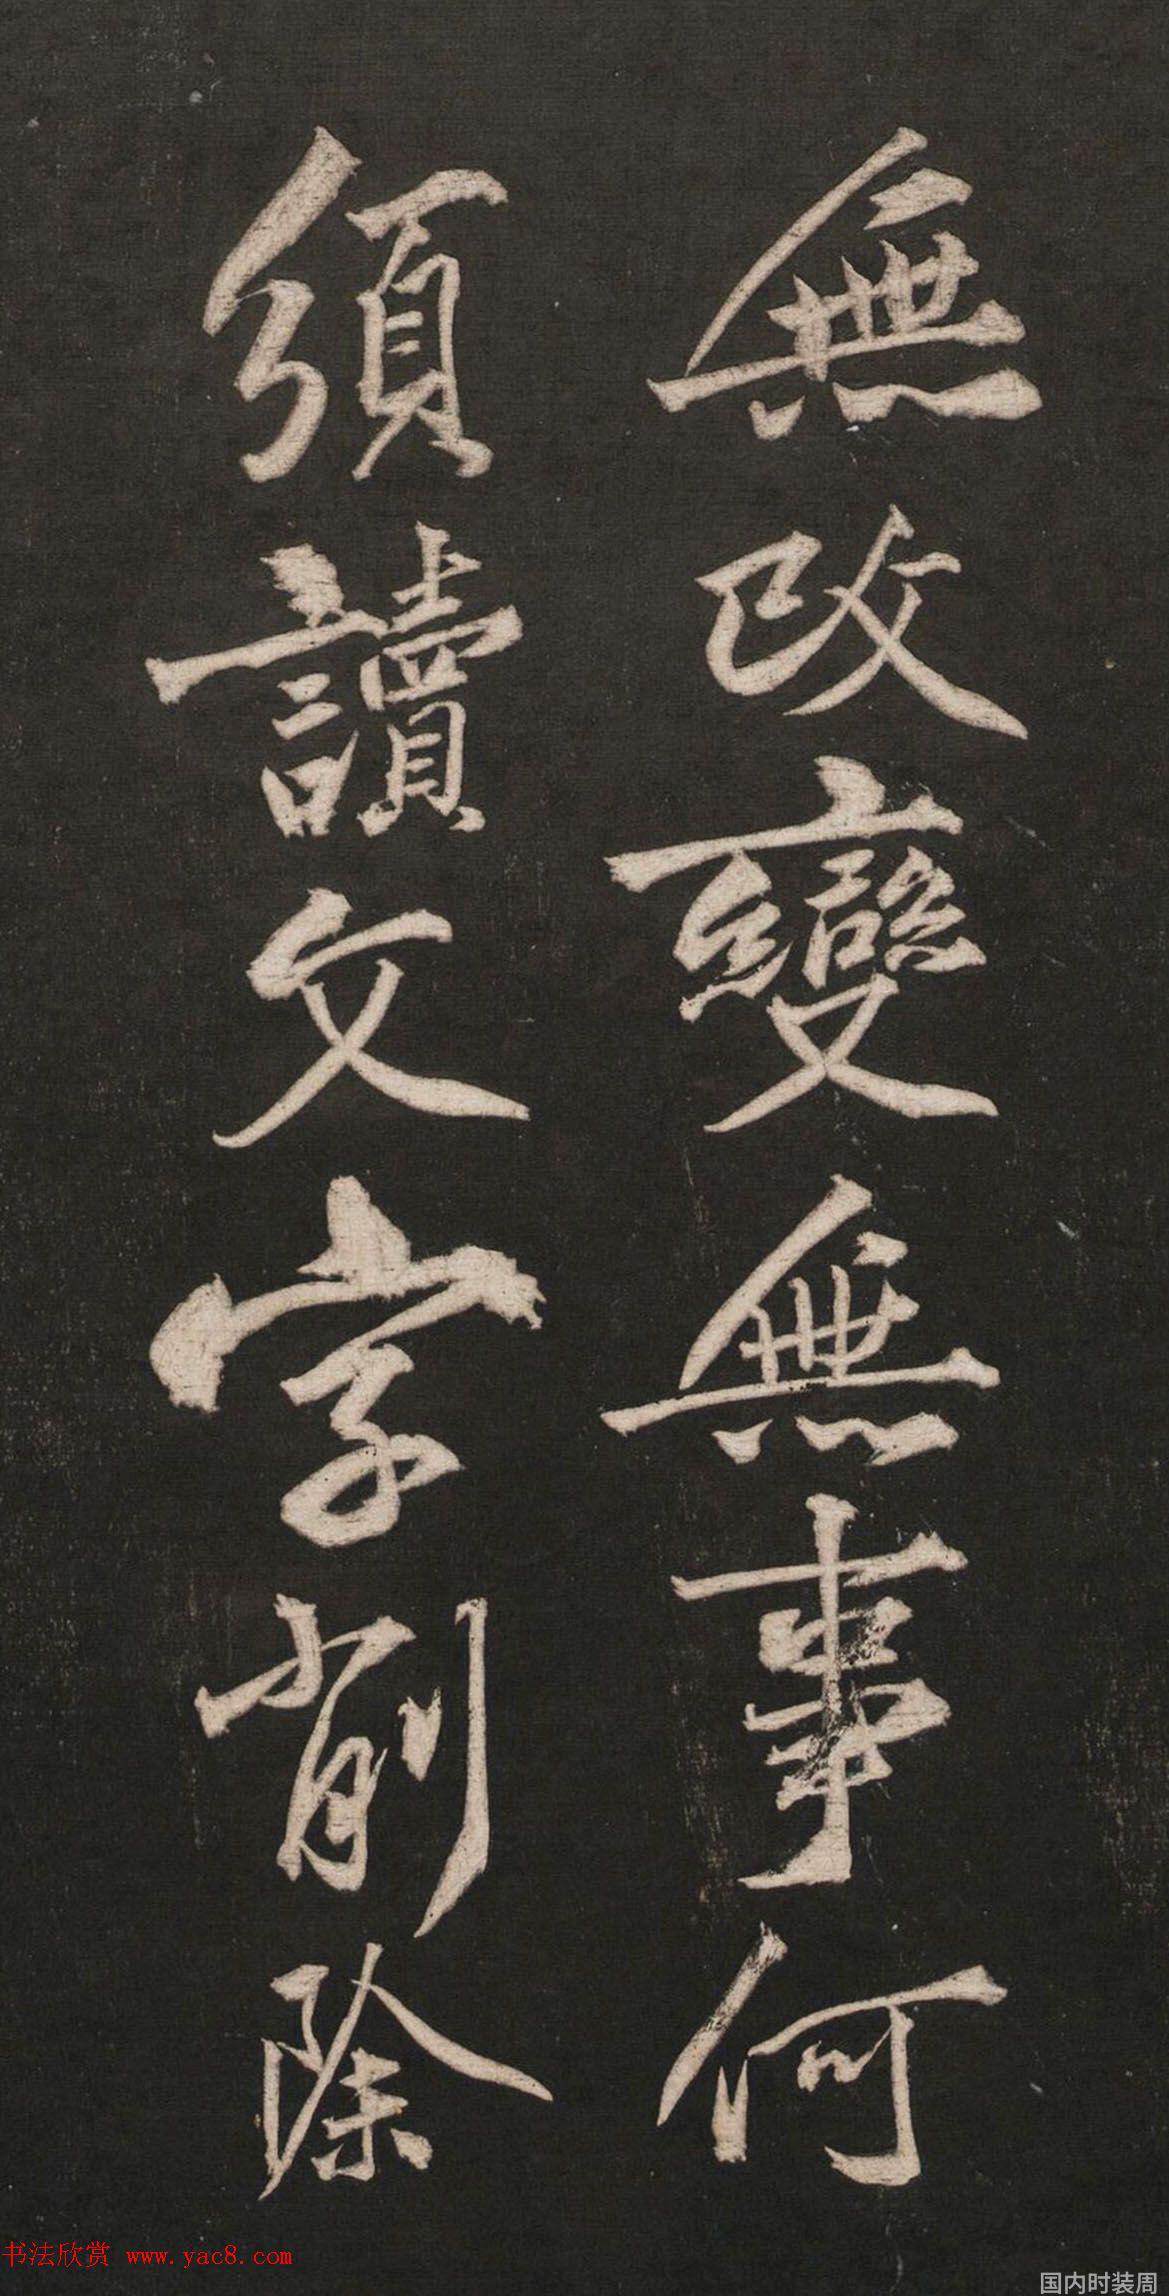 無改變無事何
須讀文字削除
书法欣赏 www.yac8.com
国内时装周